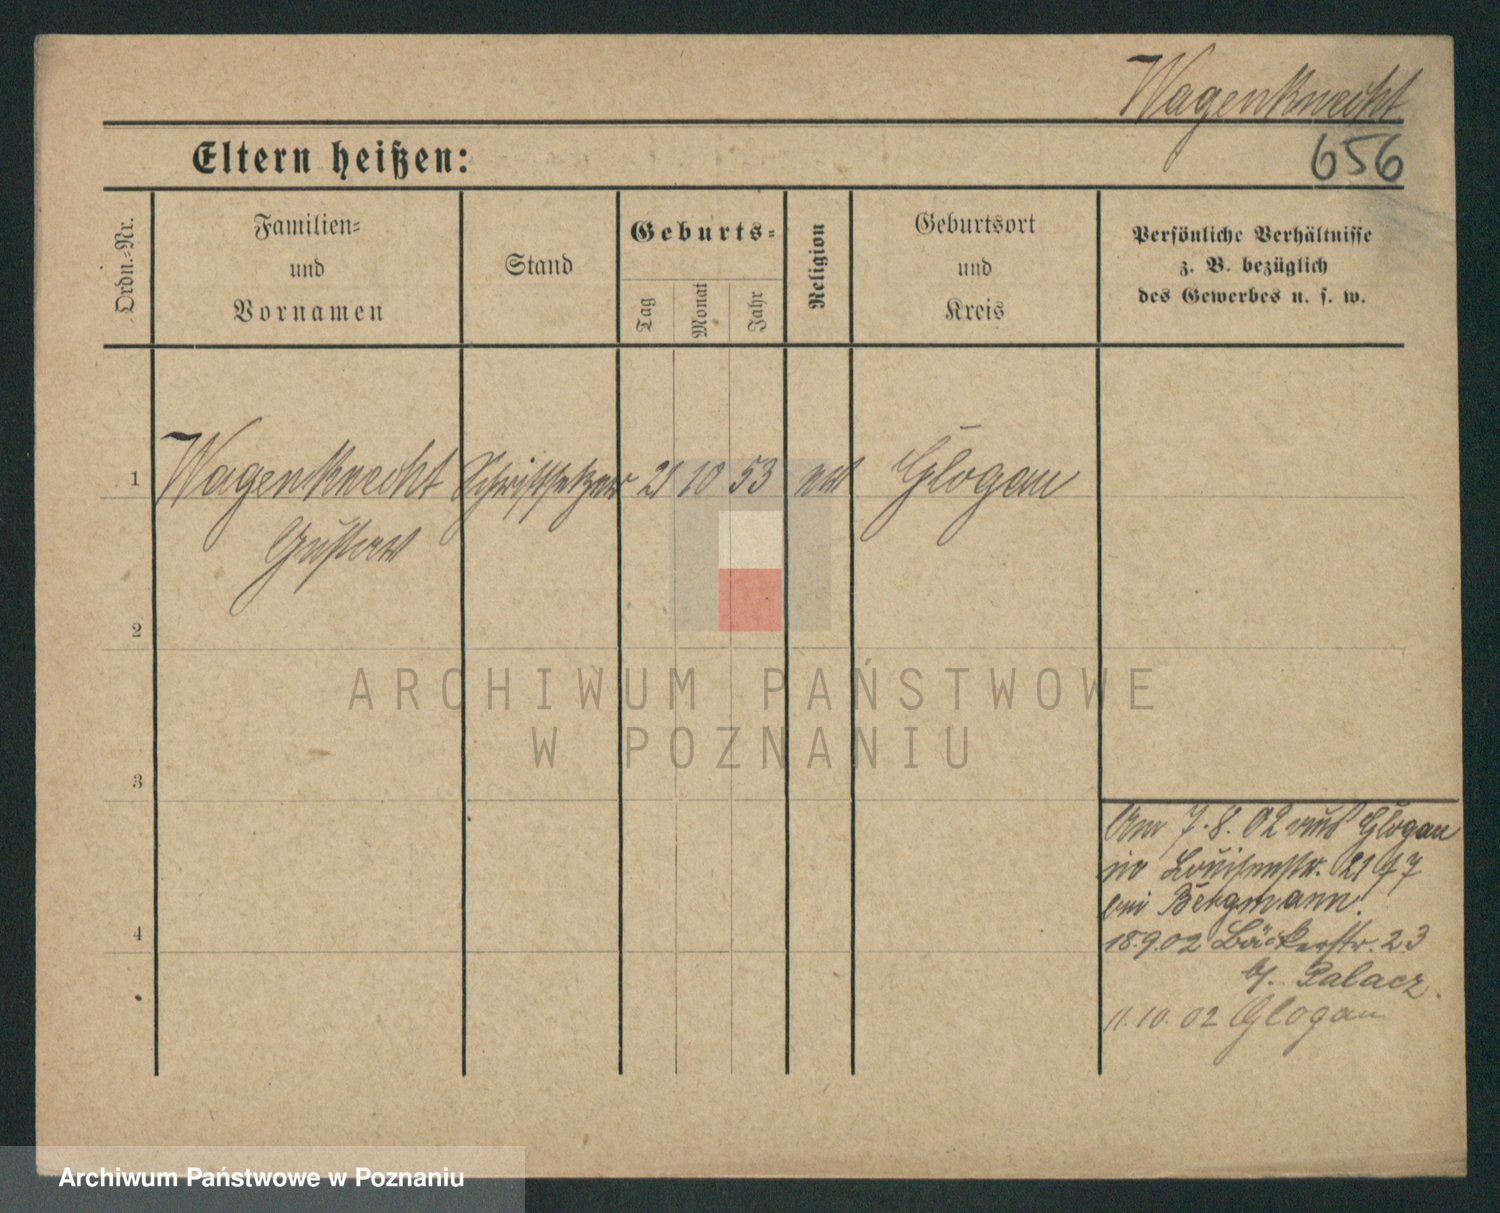 Wagenknecht
656
Eltern heißen:
Ordn.-Nr.
Familien-
und
Vornamen
Stand
Geburts-
Tag
Monat
Jahr
Religion
Geburtsort
und
Kreis
Persönliche Verhältnisse
z. B. bezüglich
des Gewerbes u. s. w.
1 Wagenknecht Schriftsetzer 21 10 53 Glogau
Gustav
2
ARCHIWUM PAŃSTWOWE
W POZNANIU
3
4
Am 7.8.02 aus Glogau
in Louisenstr.
bei Bergmann.
18.9.02 Bäckerstr. 23
b/. Palacz.
11.10.02 Glogau
Archiwum Państwowe w Poznaniu